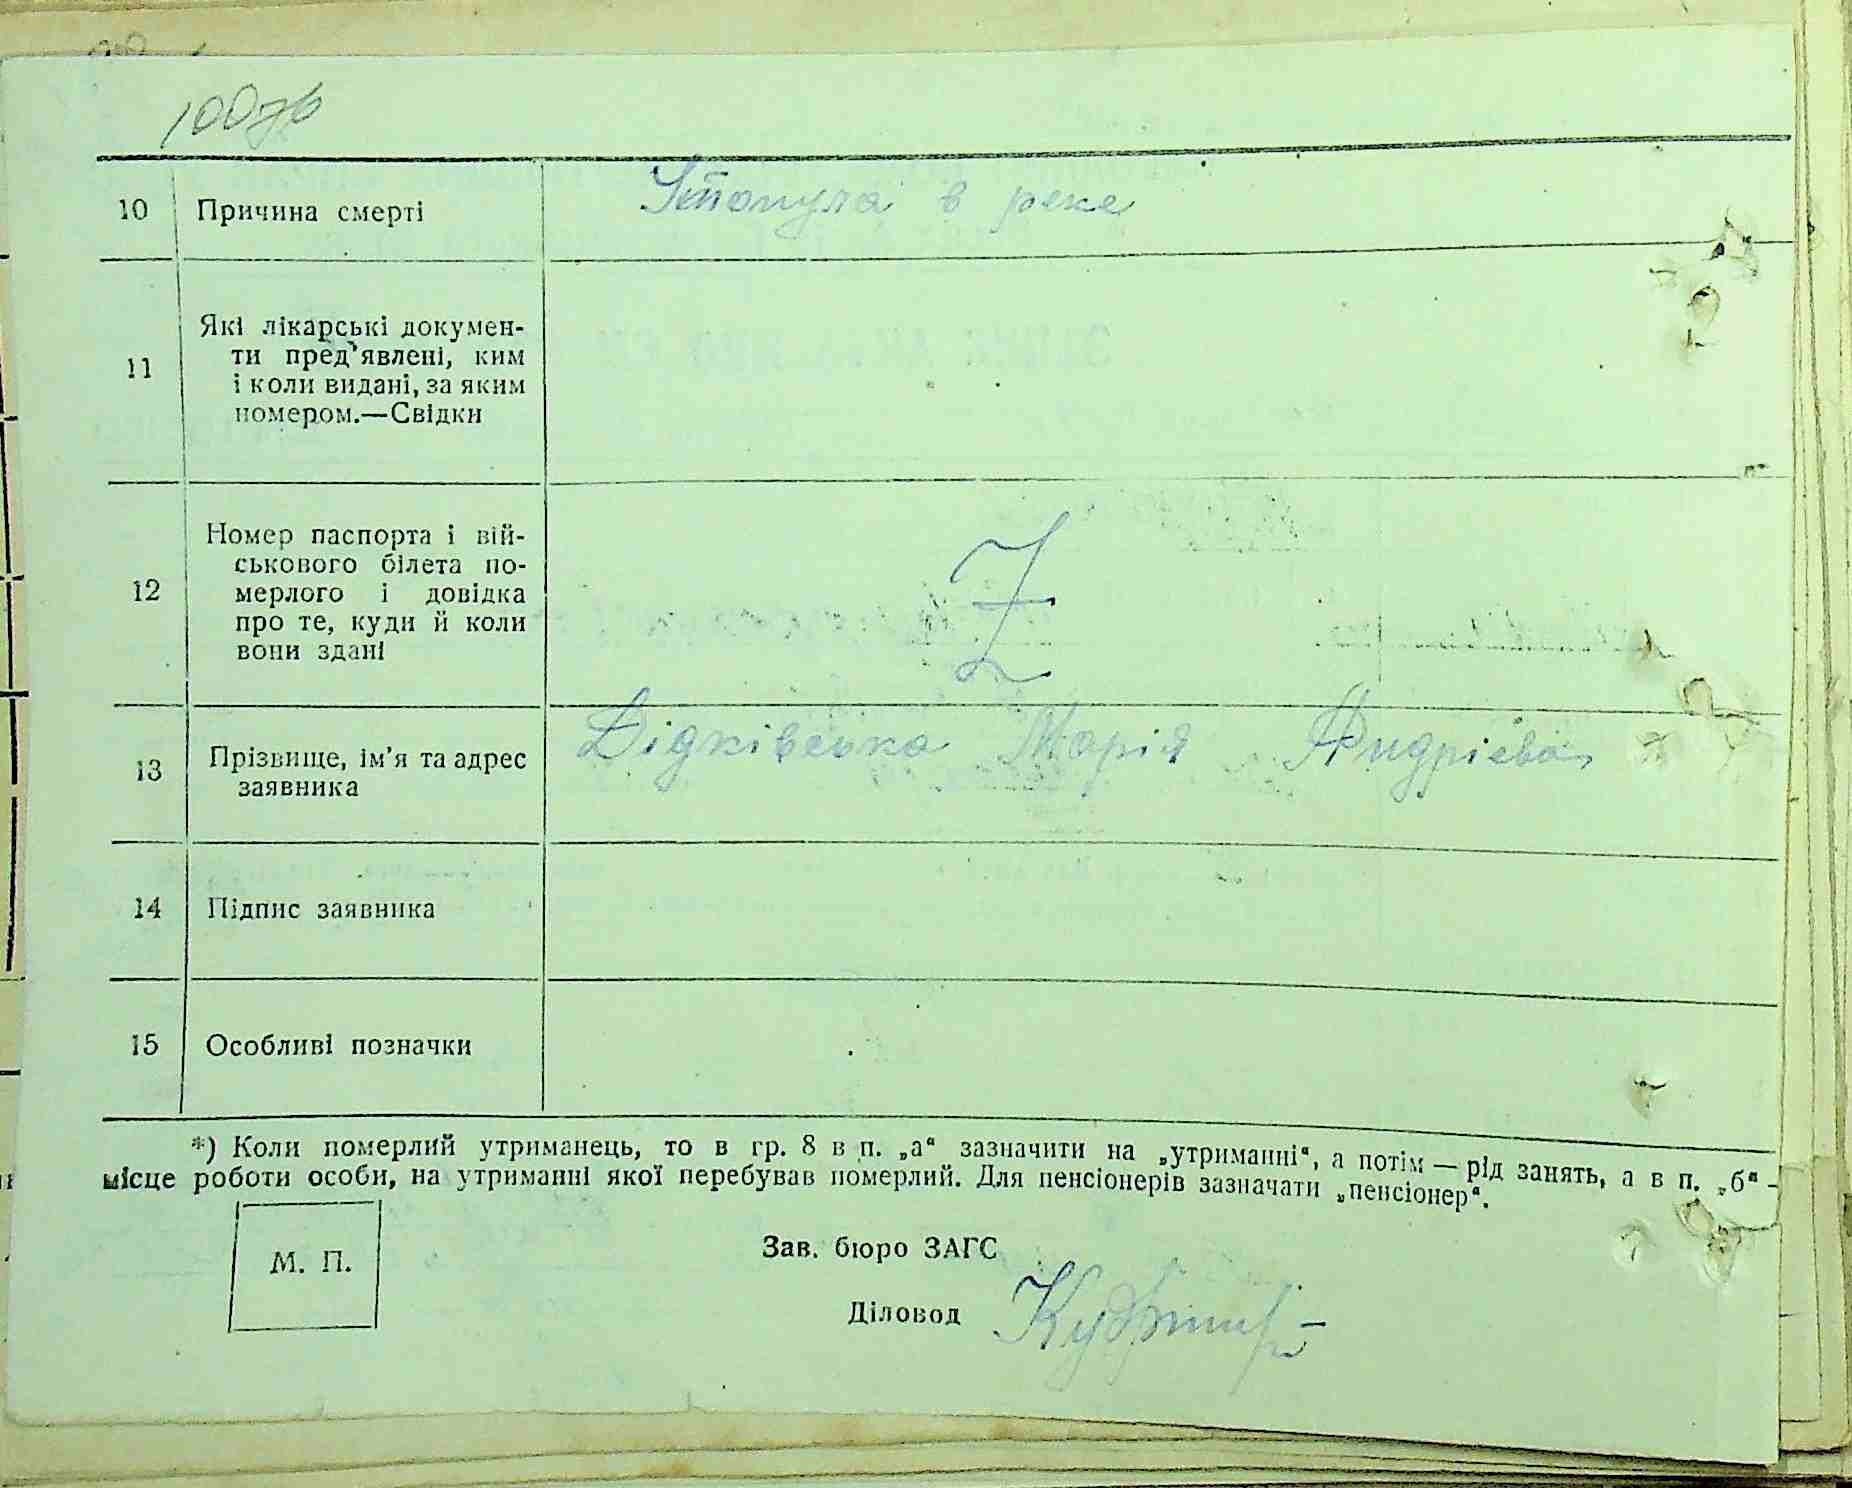 100зв
10 Причина смерті Утопула в реке
11 Які лікарські докумен-
ти пред'явлені, ким
і коли видані, за яким
номером.—Свідки
12 Номер паспорта і вій-
ськового білета по-
мерлого і довідка
про те, куди й коли
вони здані
Z
13 Прізвище, ім'я та адрес
заявника
Дідківська Марія Андрієва
14 Підпис заявника
15 Особливі позначки
*) Коли померлий утриманець, то в гр. 8 в п. „а“ зазначити на „утриманні“, а потім — рід занять, а в п. „б“ -
місце роботи особи, на утриманні якої перебував померлий. Для пенсіонерів зазначати „пенсіонер“.
М. П.
Зав. бюро ЗАГС
Діловод